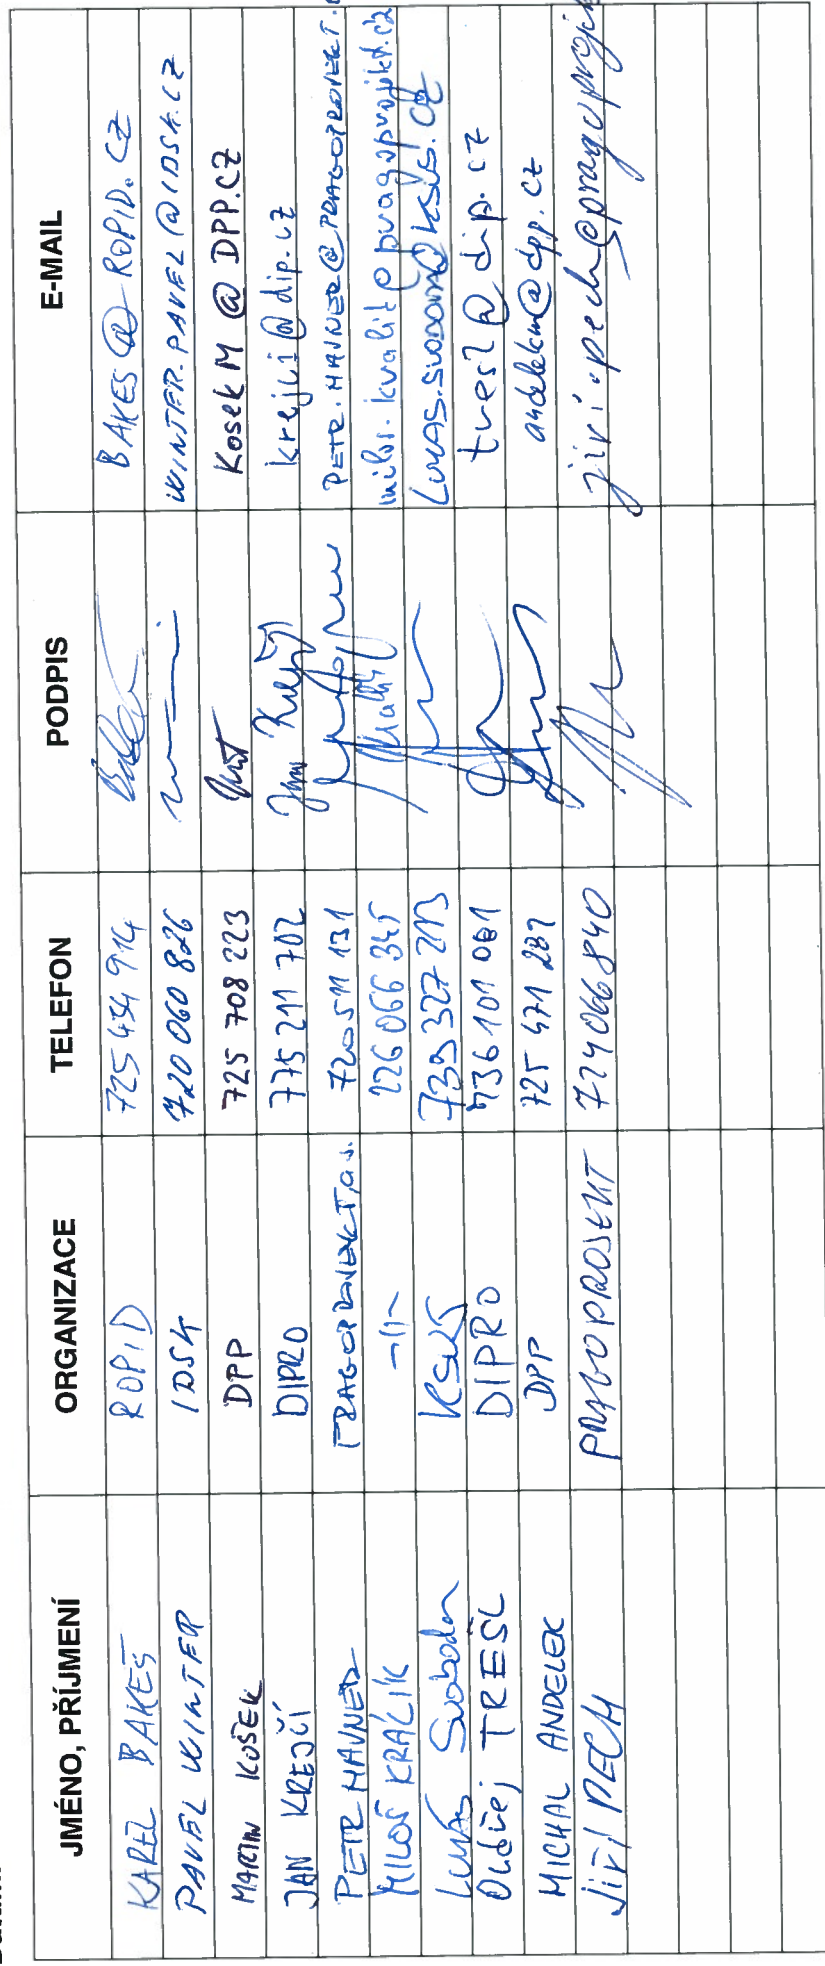 JMÉNO, PŘÍJMENÍ ORGANIZACE TELEFON PODPIS E-MAIL
KAREL BAKEŠ ROPID 725 434 914 BAKES@ROPID.CZ
PAVEL WINTER IDSK 720 060 826 WINTER.PAVEL@IDSK.CZ
MARTIN KOŠEK DPP 725 708 223 KosekM@DPP.CZ
JAN KREJČÍ DIPRO 775 211 702 Jan Krejčí krejci@dip.cz
PETR HAVNER PRAGOPROJEKT, a.s. 720511 131 PETR.HAVNER@PRAGOPROJEKT.
MILOŠ KRÁLIK -||- 226 066 345 milos.kralik@pragoprojekt.cz
Lukáš Svoboda KSÚS 739 327 213 LUKAS.SVOBODA@KSUS.CZ
Ondřej TREŠL DIPRO 736 101 081 tresl@dip.cz
MICHAL ANDELEK DPP 725 471 287 andelekm@dpp.cz
Jiří PECH PRAGOPROJEKT 724066840 jiri.pech@pragoprojek